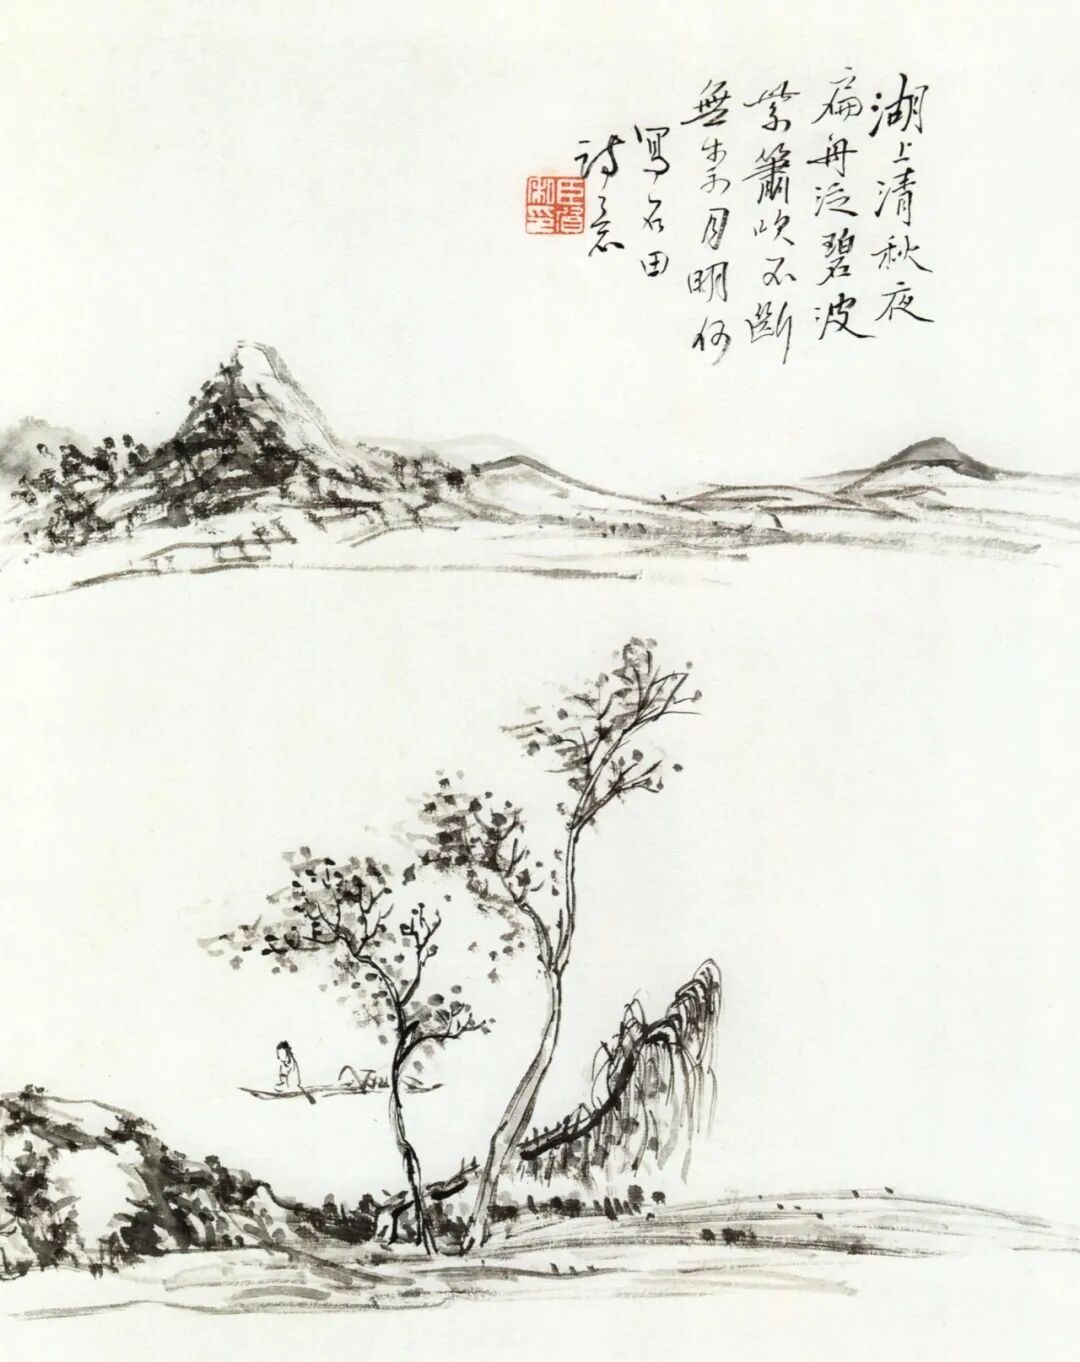 湖上清秋夜
扁舟泛碧波
紫簫吹不斷
無柰月明何
寫石田
詩意